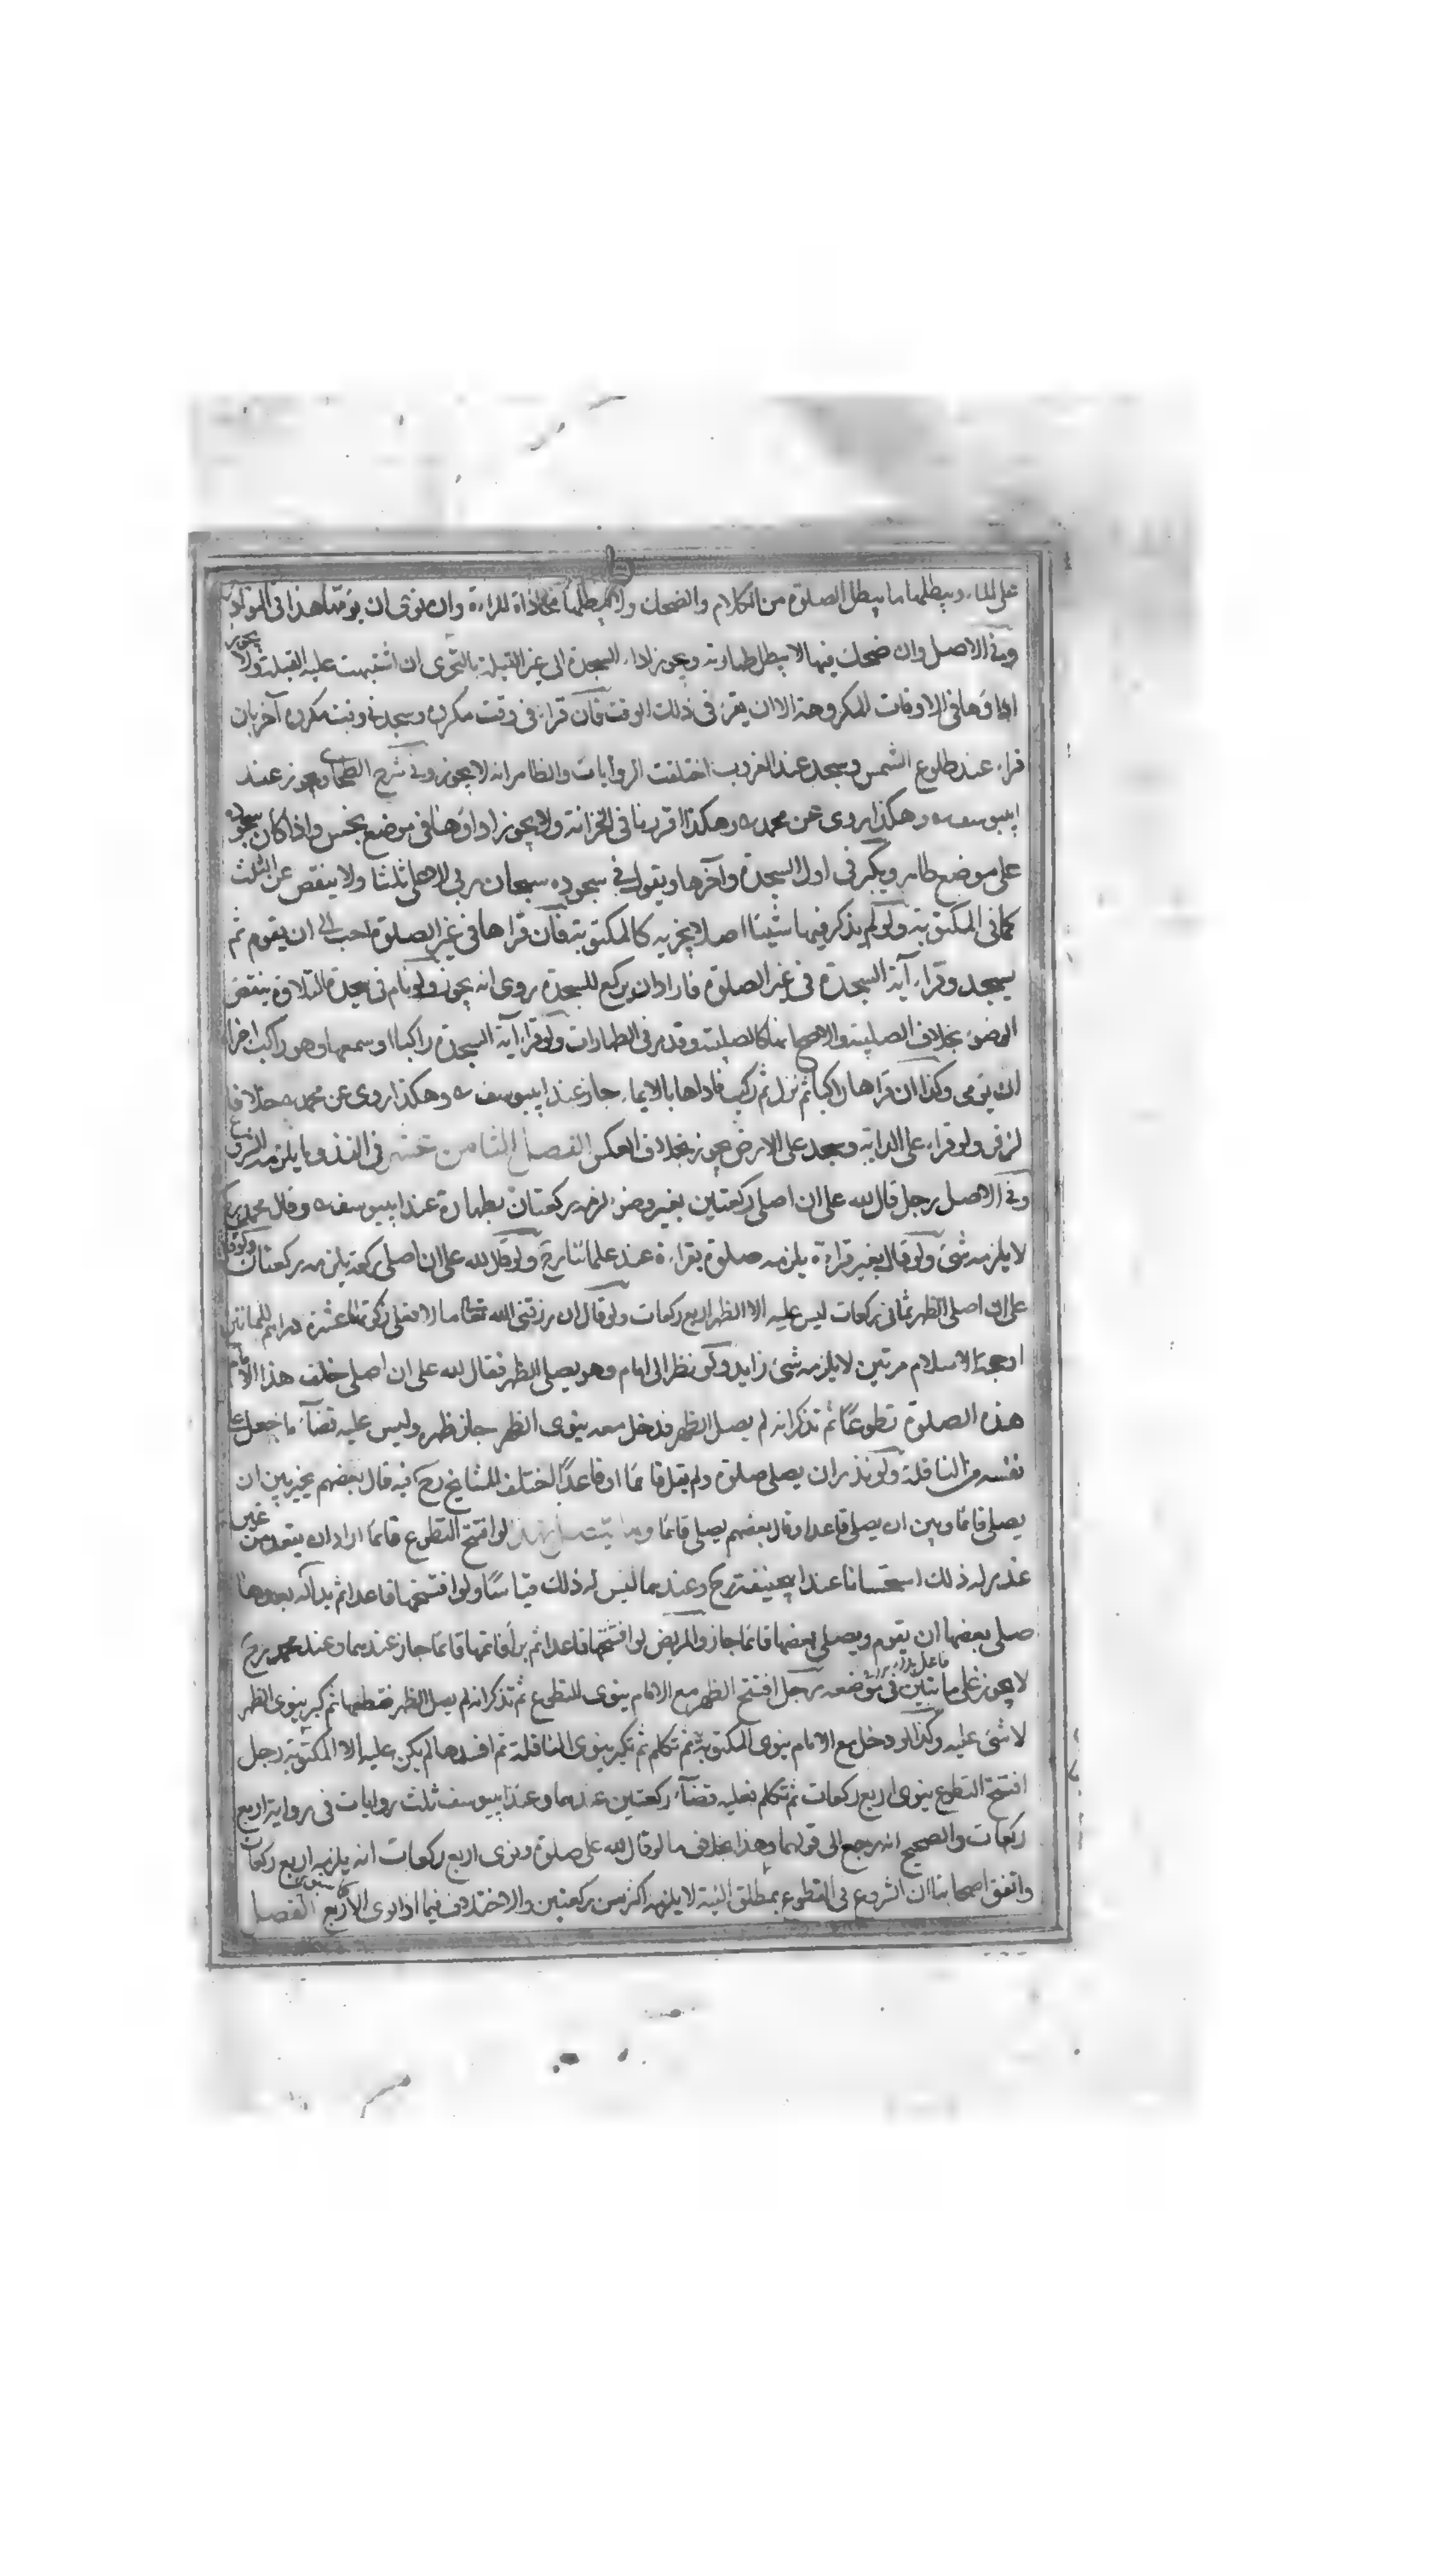 على الماء ويبطلها ما يبطل الصلوة من الكلام والضحك ولا يبطلها محاذاة المراءة وان نوى ان يؤمها هذا فى النوادر
وفى الاصل وان ضحك فيها لا يبطل طهارته ويجوز اداء السجدة الى غير القبلة بالتحرى ان اشتبهت عليه القبلة ولا يجوز
اداؤها فى الاوقات المكروهة الا ان يقرء فى ذلك الوقت فان قراء فى وقت مكروه وسجد فى وقت مكروه آخر بان
قراء عند طلوع الشمس وسجد عند الغروب اختلفت الروايات والظاهر انه لا يجوز وفى شرح الطحاوى يجوز عند
ابيوسف وهكذا روى عن محمد وهكذا اقرانا فى الخزانة ولا يجوز اداؤها فى موضع نجس واذا كان سجوده
على موضع طاهر ويكبر فى اول السجدة وآخرها ويقول فى سجوده سبحان ربى الاعلى ثلثا ولا ينقص عن الثلث
كما فى المكتوبة ولو لم يذكر فيها شيئا اصلا يجزيه كالمكتوبة فان قراها فى غير الصلوة احب الى ان يقوم ثم
يسجد وقراء آية السجدة فى غير الصلوة فاراد ان يركع للسجدة روى انه يجوز ولو نام فى سجدة التلاوة ينتقض
الوضوء بخلاف الصلبية والاصح انها كالصلبية وقد مر فى الطهارات ولو قراء آية السجدة راكبا او سمعها وهو راكب اجزاه
ان يومى وكذا ان قراها راكبا ثم نزل ثم ركب فاداها بالايماء جاز عند ابيوسف وهكذا روى عن محمد خلافا
لزفر ولو قراء على الدابة وسجد على الارض يجوز بخلاف العكس الفصل الثامن عشر فى النذر وما يلزمه بالشروع
وفى الاصل رجل قال لله على ان اصلى ركعتين بغير وضوء لزمه ركعتان بطهارة عند ابيوسف وقال محمد رح
لا يلزمه شئ ولو قال بغير قراءة يلزمه صلوة بقراءة عند علمائنا رح ولو قال لله على ان اصلى ركعة يلزمه ركعتان ولو قال لله
على ان اصلى الظهر ثمانى ركعات ليس عليه الا الظهر اربع ركعات ولو قال ان رزقنى الله تعالى مالا فعلى زكوتها عشرة دراهم للمائتين
او حجة الاسلام مرتين لا يلزمه شئ زايد ولو نظر الى امام وهو يصلى الظهر فقال لله على ان اصلى خلف هذا الامام
هذه الصلوة تطوعًا ثم تذكر انه لم يصل الظهر فدخل معه ينوى الظهر جاز ظهره وليس عليه قضاء ما جعل على
نفسه من النافلة ولو نذر ان يصلى صلوة ولم يقل قائمًا او قاعدًا اختلف المشايخ رح فيه قال بعضهم يخير بين ان
يصلى قائمًا وبين ان يصلى قاعدا وقال بعضهم يصلى قائمًا لو افتتح التطوع قائمًا اراد ان يقعد من غير
عذر له ذلك استحسانا عند ابيحنيفة رح وعندهما ليس له ذلك قياسًا ولو افتتحها قاعدا ثم بدا له بعد ما
صلى بعضها ان يقوم ويصلى بعضها قائمًا جاز والمريض لو افتتحها قاعدا ثم برأ فاتمها قائمًا جاز عندهما وعند محمد رح
لا يجوز على ما تبين فى موضعه رجل افتتح الظهر مع الامام ينوى التطوع ثم تذكر انه لم يصل الظهر فقطعها ثم كبر ينوى الظهر
لا شئ عليه وكذا لو دخل مع الامام ينوى المكتوبة ثم تكلم ثم كبر ينوى النافلة ثم افسدها لم يكن عليه الا المكتوبة رجل
افتتح التطوع ينوى اربع ركعات ثم تكلم فعليه قضاء ركعتين عندهما وعند ابيوسف ثلث روايات فى رواية اربع
ركعات والصحيح انه رجع الى قولهما وهذا بخلاف ما لو قال لله على صلوة ونوى اربع ركعات انه يلزمه اربع ركعات
واتفق اصحابنا ان الشروع فى التطوع بمطلق النية لا يلزمه اكثر من ركعتين والاختلاف فيما اذا نوى الاربع الفصل